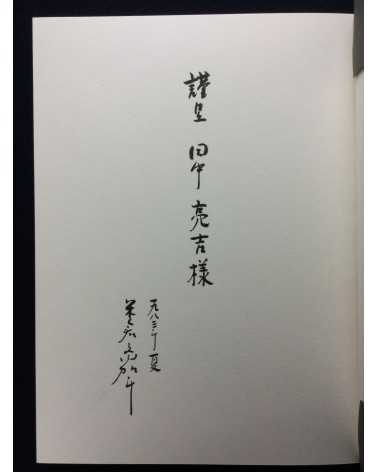 謹呈 田中 亮吉 様
一九八三年 夏